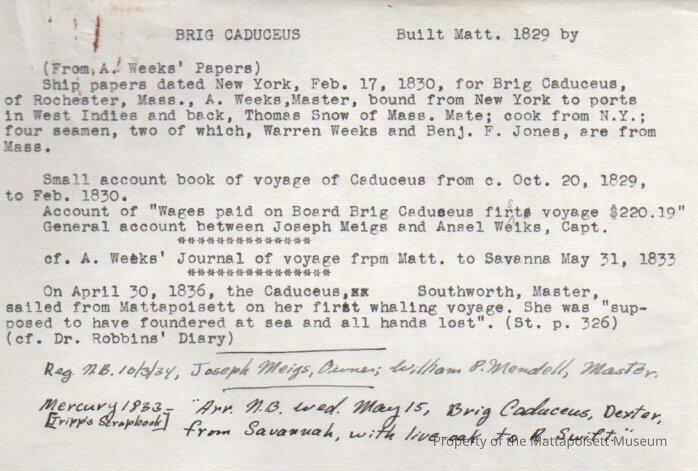 BRIG CADUCEUS Built Matt. 1829 by
(From A. Weeks' Papers)
Ship papers dated New York, Feb. 17, 1830, for Brig Caduceus,
of Rochester, Mass., A. Weeks,Master, bound from New York to ports
in West Indies and back, Thomas Snow of Mass. Mate; cook from N.Y.;
four seamen, two of which, Warren Weeks and Benj. F. Jones, are from
Mass.
Small account book of voyage of Caduceus from c. Oct. 20, 1829,
to Feb. 1830.
Account of "Wages paid on Board Brig Caduceus first voyage $220.19"
General account between Joseph Meigs and Ansel Weeks, Capt.
**************
cf. A. Weeks' Journal of voyage frpm Matt. to Savanna May 31, 1833
***************
On April 30, 1836, the Caduceus,xx Southworth, Master,
sailed from Mattapoisett on her first whaling voyage. She was "sup-
posed to have foundered at sea and all hands lost". (St. p. 326)
(cf. Dr. Robbins' Diary)
Reg. N.B. 10/3/34, Joseph Meigs, Owner; William P. Mendell, Master.
Mercury 1833- "Arr. N.B. Wed. May 15, Brig Caduceus, Dexter,
[Tripp's Scrapbook] from Savannah, with live oak to R. Swift."
Property of the Mattapoisett Museum